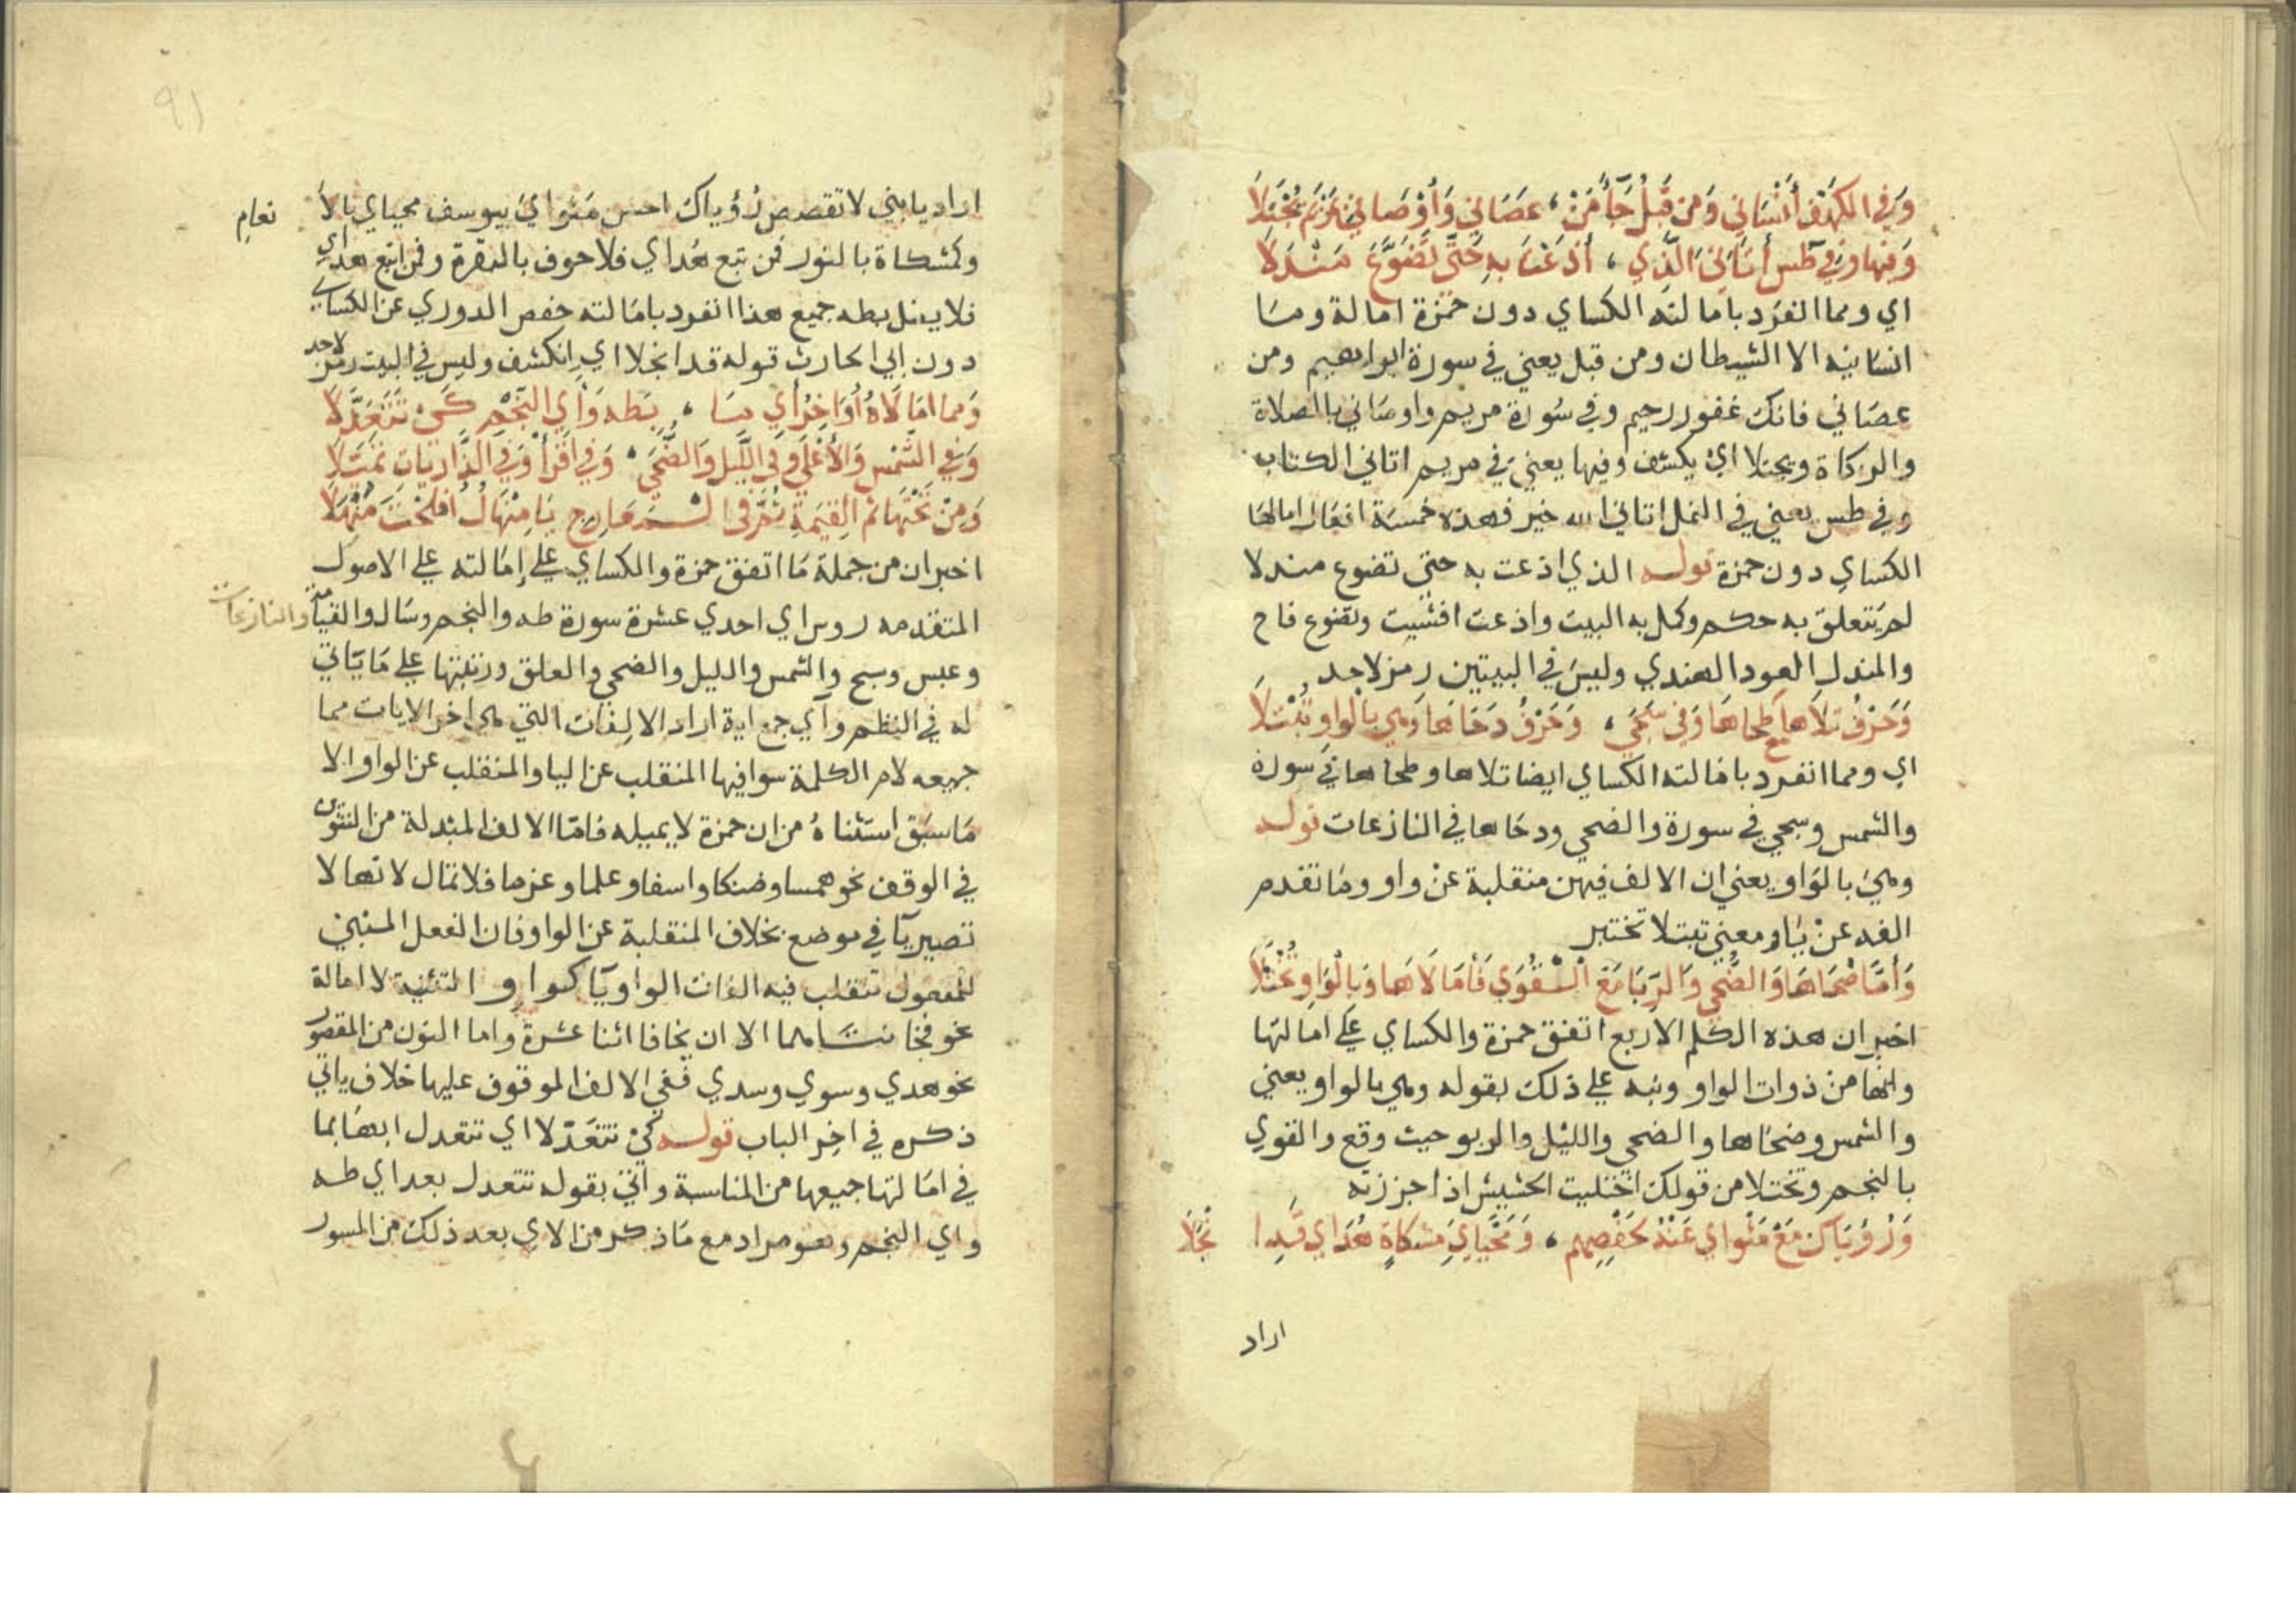 وَفِي الكَهْفِ أَنْسَانِي وَمِن قَبْلُ جَآءَ مَنْ ، عَصَانِي وَأَوْصَانِي بِمَرْيَمَ يُجْتَلَا
وَفِيهَا وَفِي طس أَتَانِيَ الَّذِي ، أَذَعْتُ بِهِ حَتَّى تَضَوَّعَ مَنْدَلَا
اي ومما انفرد بامالته الكساي دون حمزة امالة وما
انسانيه الا الشيطان ومن قبل يعني في سورة ابراهيم ومن
عصاني فانك غفور رحيم وفي سورة مريم واوصاني بالصلاة
والزكاة ويجتلا اي يكشف وفيها يعني في مريم اتاني الكتاب
وفي طس يعني في النمل اتاني الله خير فهذه خمسة افعال امالها
الكساي دون حمزة قوله الذي اذعت به حتى تضوع مندلا
لم يتعلق به حكم وكمل به البيت واذعت افشيت وتضوع فاح
والمندل العود الهندي وليس في البيتين رمز لاحد
وَحَرْفُ تَلَاهَا مَع طَحَاهَا وَفِي سَجَى ، وَحَرْفُ دَحَاهَا وَهِي بِالْوَاوِ تُبْتَلَا
اي ومما انفرد بامالته الكساي ايضا تلاها وطحاها في سورة
والشمس وسجي في سورة والضحي ودحاها في النازعات قوله
وهي بالواو يعني ان الالف فيهن منقلبة عن واو وما تقدم
الفه عن ياء ومعني تبتلا تختبر
وَأَمَّا ضُحَاهَا وَالضُّحَى وَالرِّبَا مَعَ الْقُوَى فَأَمَالَاهَا وَبِالْوَاوِ تُخْتَلَا
اخبر ان هذه الكلم الاربع اتفق حمزة والكساي علي امالتها
وانها من ذوات الواو ونبه علي ذلك بقوله وهي بالواو يعني
والشمس وضحاها والضحي والليل والربو حيث وقع والقوي
بالنجم وتختلا من قولك اختليت الحشيش اذا جززته
وَرُؤْيَاكَ مَعْ مَثْوَايَ عَنْهُ لِحَفْصِهِم ، وَمَحْيَايَ مِشْكَاةٍ هُدَايَ قَدِ انْجَلَا
اراد
اراد يا بني لا تقصص رؤياك احسن مثواي بيوسف محياي بالا نعام
وكمشكاة بالنور فمن تبع هداي فلا خوف بالبقرة وفمن اتبع هداي
فلا يضل بطه جميع هذا انفرد بامالته حفص الدوري عن الكساي
دون ابي الحارث قوله قد انجلا اي انكشف وليس في البيت رمز لاحد
وَمِما أَمَالَاهُ أَوَاخِرُ آيِ مَا ، بِطه وَآيِ النَّجْمِ كَيْ تَتَعَدَّلَا
وَفِي الشَّمْسِ وَالأَعْلَى وَفِي اللَّيْلِ وَالضُّحَى ، وَفِي اقْرَأْ وَفِي النَّازِعَاتِ تَمَيَّلَا
وَمِنْ تَحْتِهَا ثُمَّ القِيمَةِ ثُمَّ فِي الْمَعَارِجِ يَا مِنْهَالُ أَفْلَحْتَ مُنْهِلَا
اخبر ان من جملة ما اتفق حمزة والكساي علي إمالته علي الاصول
المتقدمه روس اي احدي عشرة سورة طه والنجم وسال والقيامة والنازعات
وعبس وسبح والشمس والليل والضحي والعلق ورتبتها علي ما يتاتي
له في النظم وآي جمع اية اراد الالفات التي هي اخر الايات مما
جميعه لام الكلمة سوا فيها المنقلب عن اليا والمنقلب عن الواو الا
ما سبق استثناه من ان حمزة لا يميله فاما الالف المبدلة من التنوين
في الوقف نحو همسا وضنكا واسفا وعلما وعزما فلا تمال لانها لا
تصير يآ في موضع بخلاف المنقلبة عن الواو فان الفعل المبني
للمفعول تنقلب فيه الفات الواو يآ
ذكره في اخر الباب قوله كي تتعدلا اي تتعدل ايها بما
في امالتها جميعها من المناسبة واتي بقوله تتعدل بعد اي طه
واي النجم وهو مراد مع ما ذكر من الاي بعد ذلك من السور